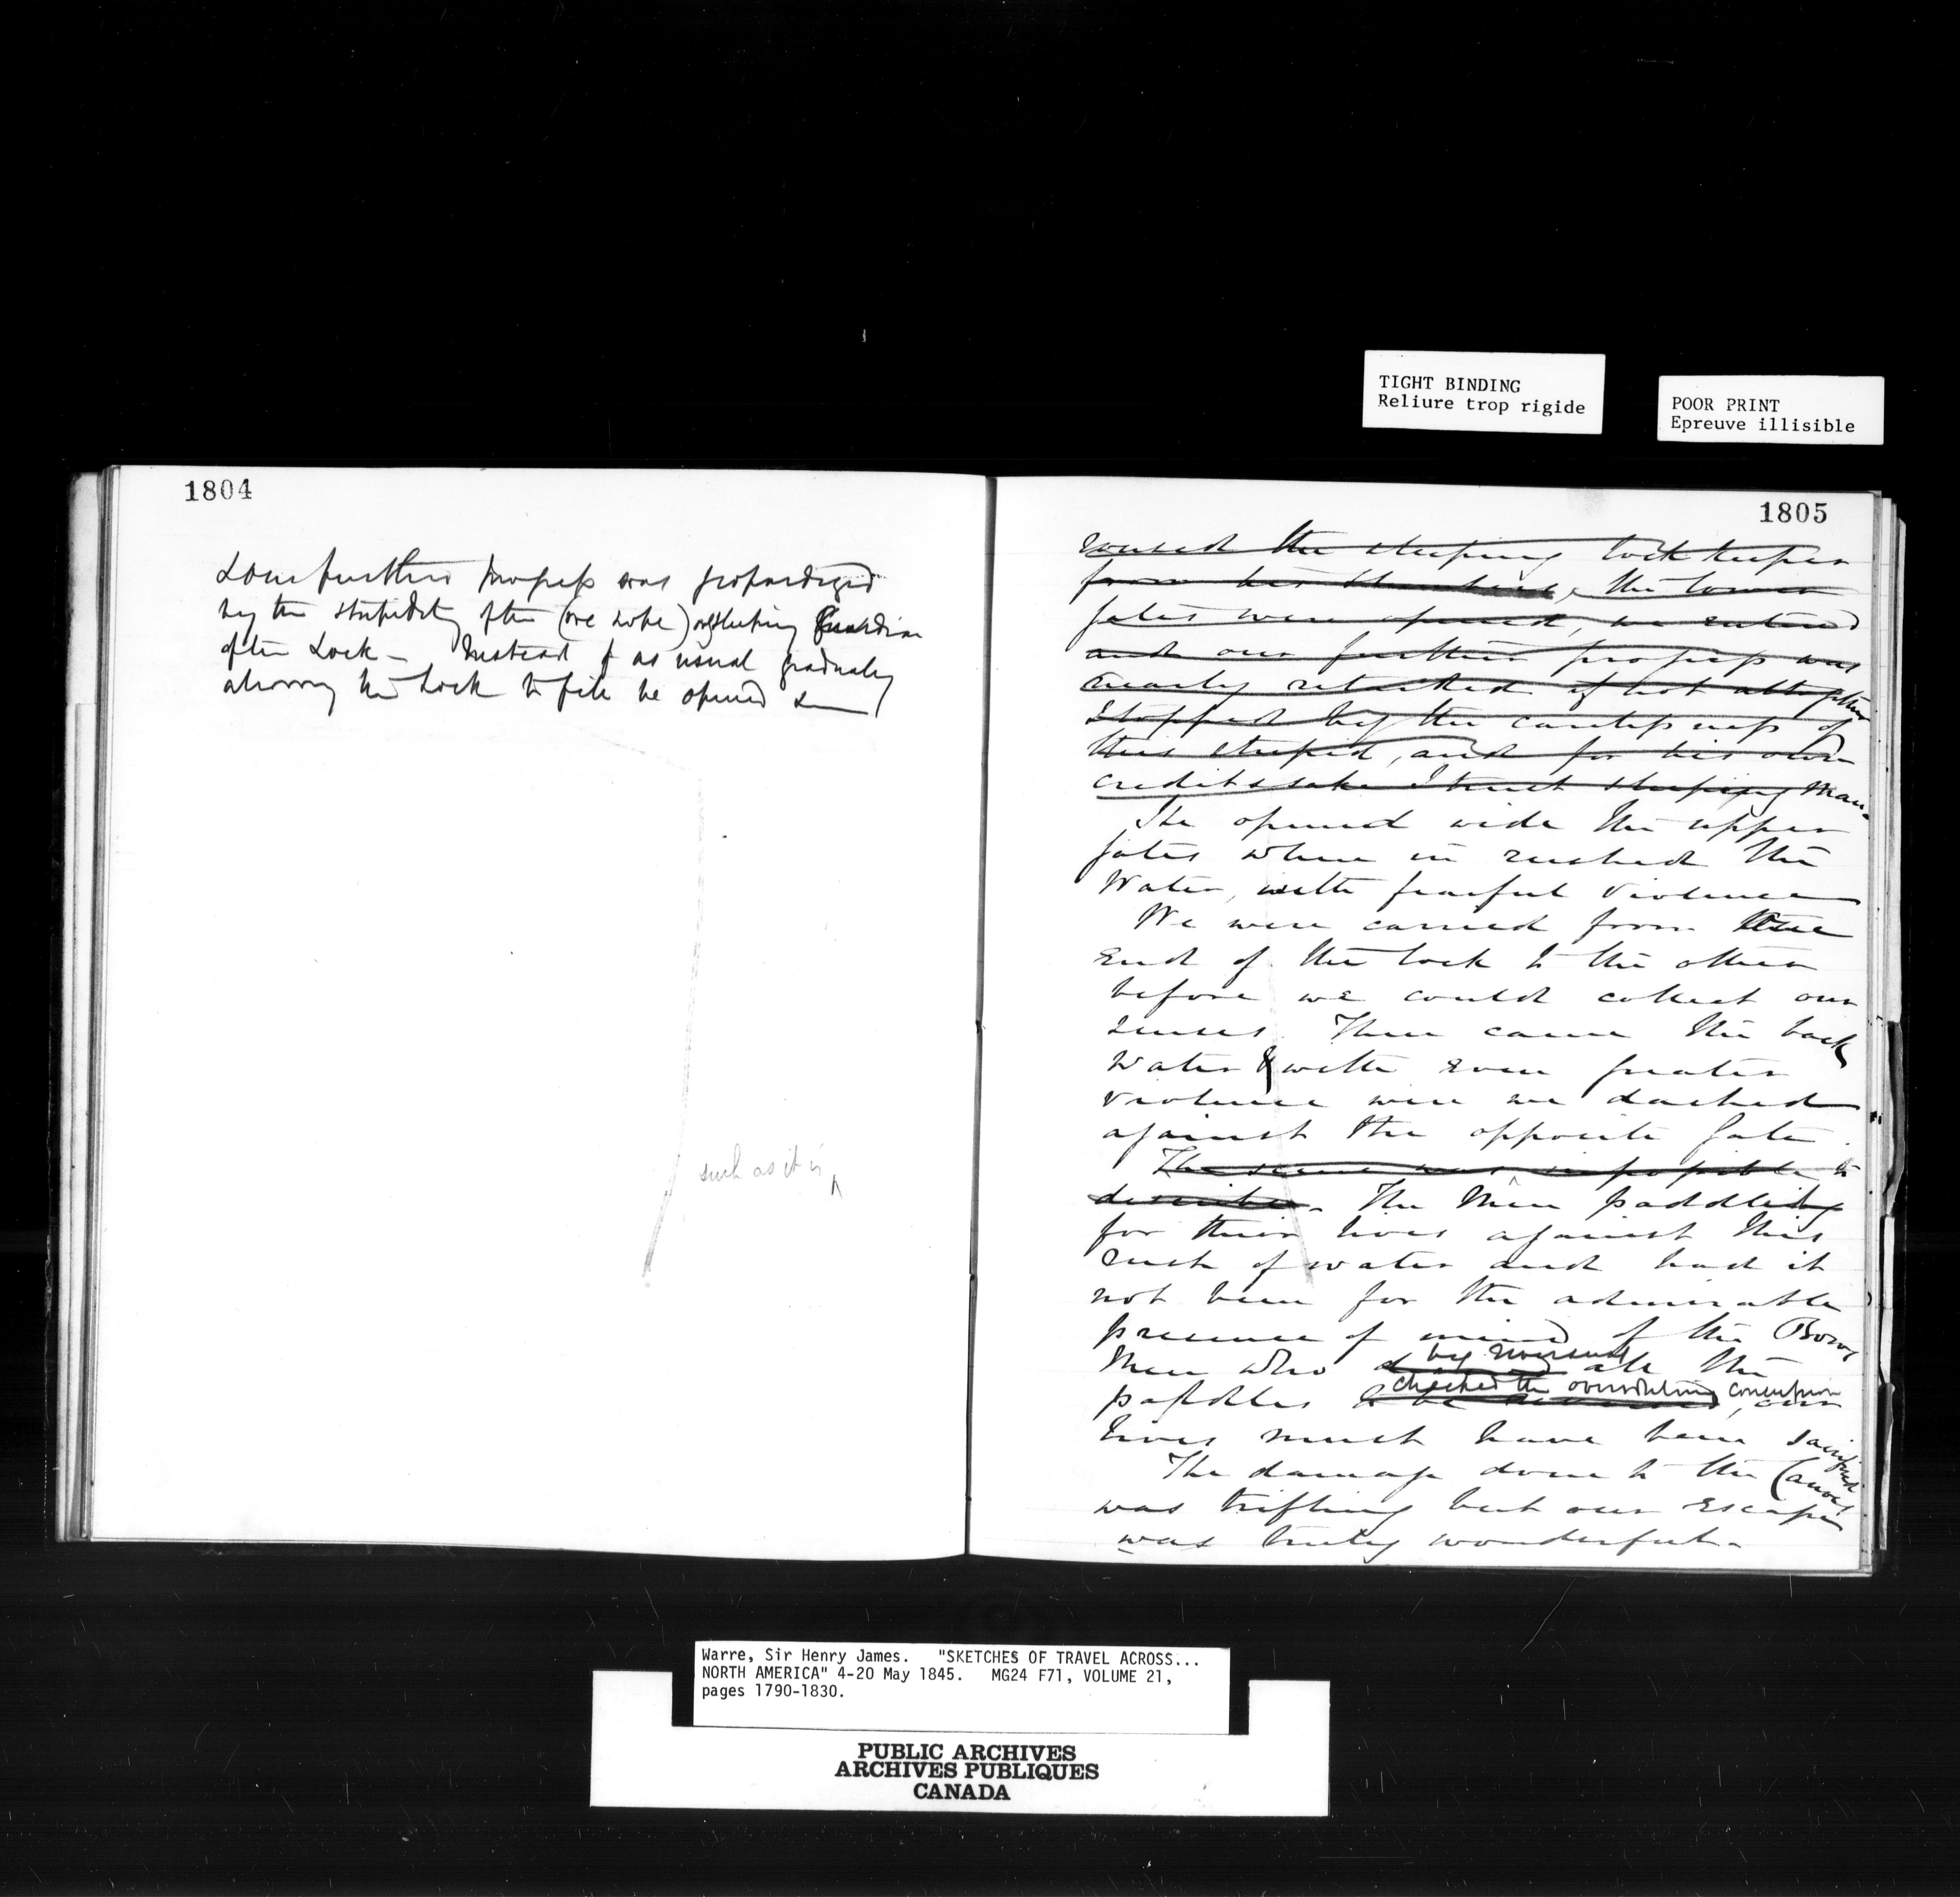 TIGHT BINDING
Reliure trop rigide
POOR PRINT
Epreuve illisible
1804
& our further progress was jeopardized
by the stupidity of the (we hope) sleeping Guardian
of the Lock — Instead of as usual gradually
allowing the Lock to fill he opened &
such as it is
1805
roused the sleeping lock keeper
from his slumbers, the lower
gates were opened, we entered
and our further progress was
nearly retarded if not altogether
stopped by the carelessness of
this stupid, and for his own
credits sake I trust sleeping Man.
He opened wide the upper
gates when in rushed the
Water, with fearful violence
We were carried from one
end of the lock to the other
before we could collect our
senses. Then came the back
water & with even greater
violence were we dashed
against the opposite gate.
The scene was impossible to
describe. The Men paddling
for their lives against this
rush of water and had it
not been for the admirable
presence of mind of the Bows
Men who by reversing all the
paddles checked the overwhelming concussion, our
lives must have been sacrificed
The damage done to the Canoes
was trifling but our escape
was truly wonderful.
Warre, Sir Henry James. "SKETCHES OF TRAVEL ACROSS...
NORTH AMERICA" 4-20 May 1845. MG24 F71, VOLUME 21,
pages 1790-1830.
PUBLIC ARCHIVES
ARCHIVES PUBLIQUES
CANADA